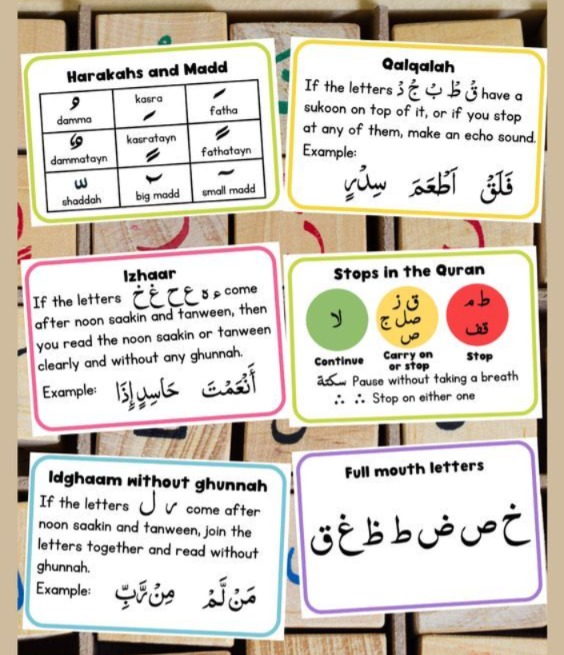 Harakahs and Madd
damma
kasra
fatha
dammatayn
kasratayn
fathatayn
shaddah
big madd
small madd
Qalqalah
If the letters قْ طْ بْ جْ دْ have a
sukoon on top of it, or if you stop
at any of them, make an echo sound.
Example:
فَلَقْ أَطْعَمَ سِدْرٍ
Izhaar
If the letters ء ه ع ح غ خ come
after noon saakin and tanween, then
you read the noon saakin or tanween
clearly and without any ghunnah.
Example: أَنْعَمْتَ حَاسِدٍ إِذَا
Stops in the Quran
لا
ق ز
صل ج
ص
ط م
قف
Continue
Carry on
or stop
Stop
سكتة Pause without taking a breath
∴ ∴ Stop on either one
Idghaam without ghunnah
If the letters ل ر come after
noon saakin and tanween, join the
letters together and read without
ghunnah.
Example: مَنْ لَّمْ مِنْ رَّبِّ
Full mouth letters
خ ص ض ط ظ غ ق